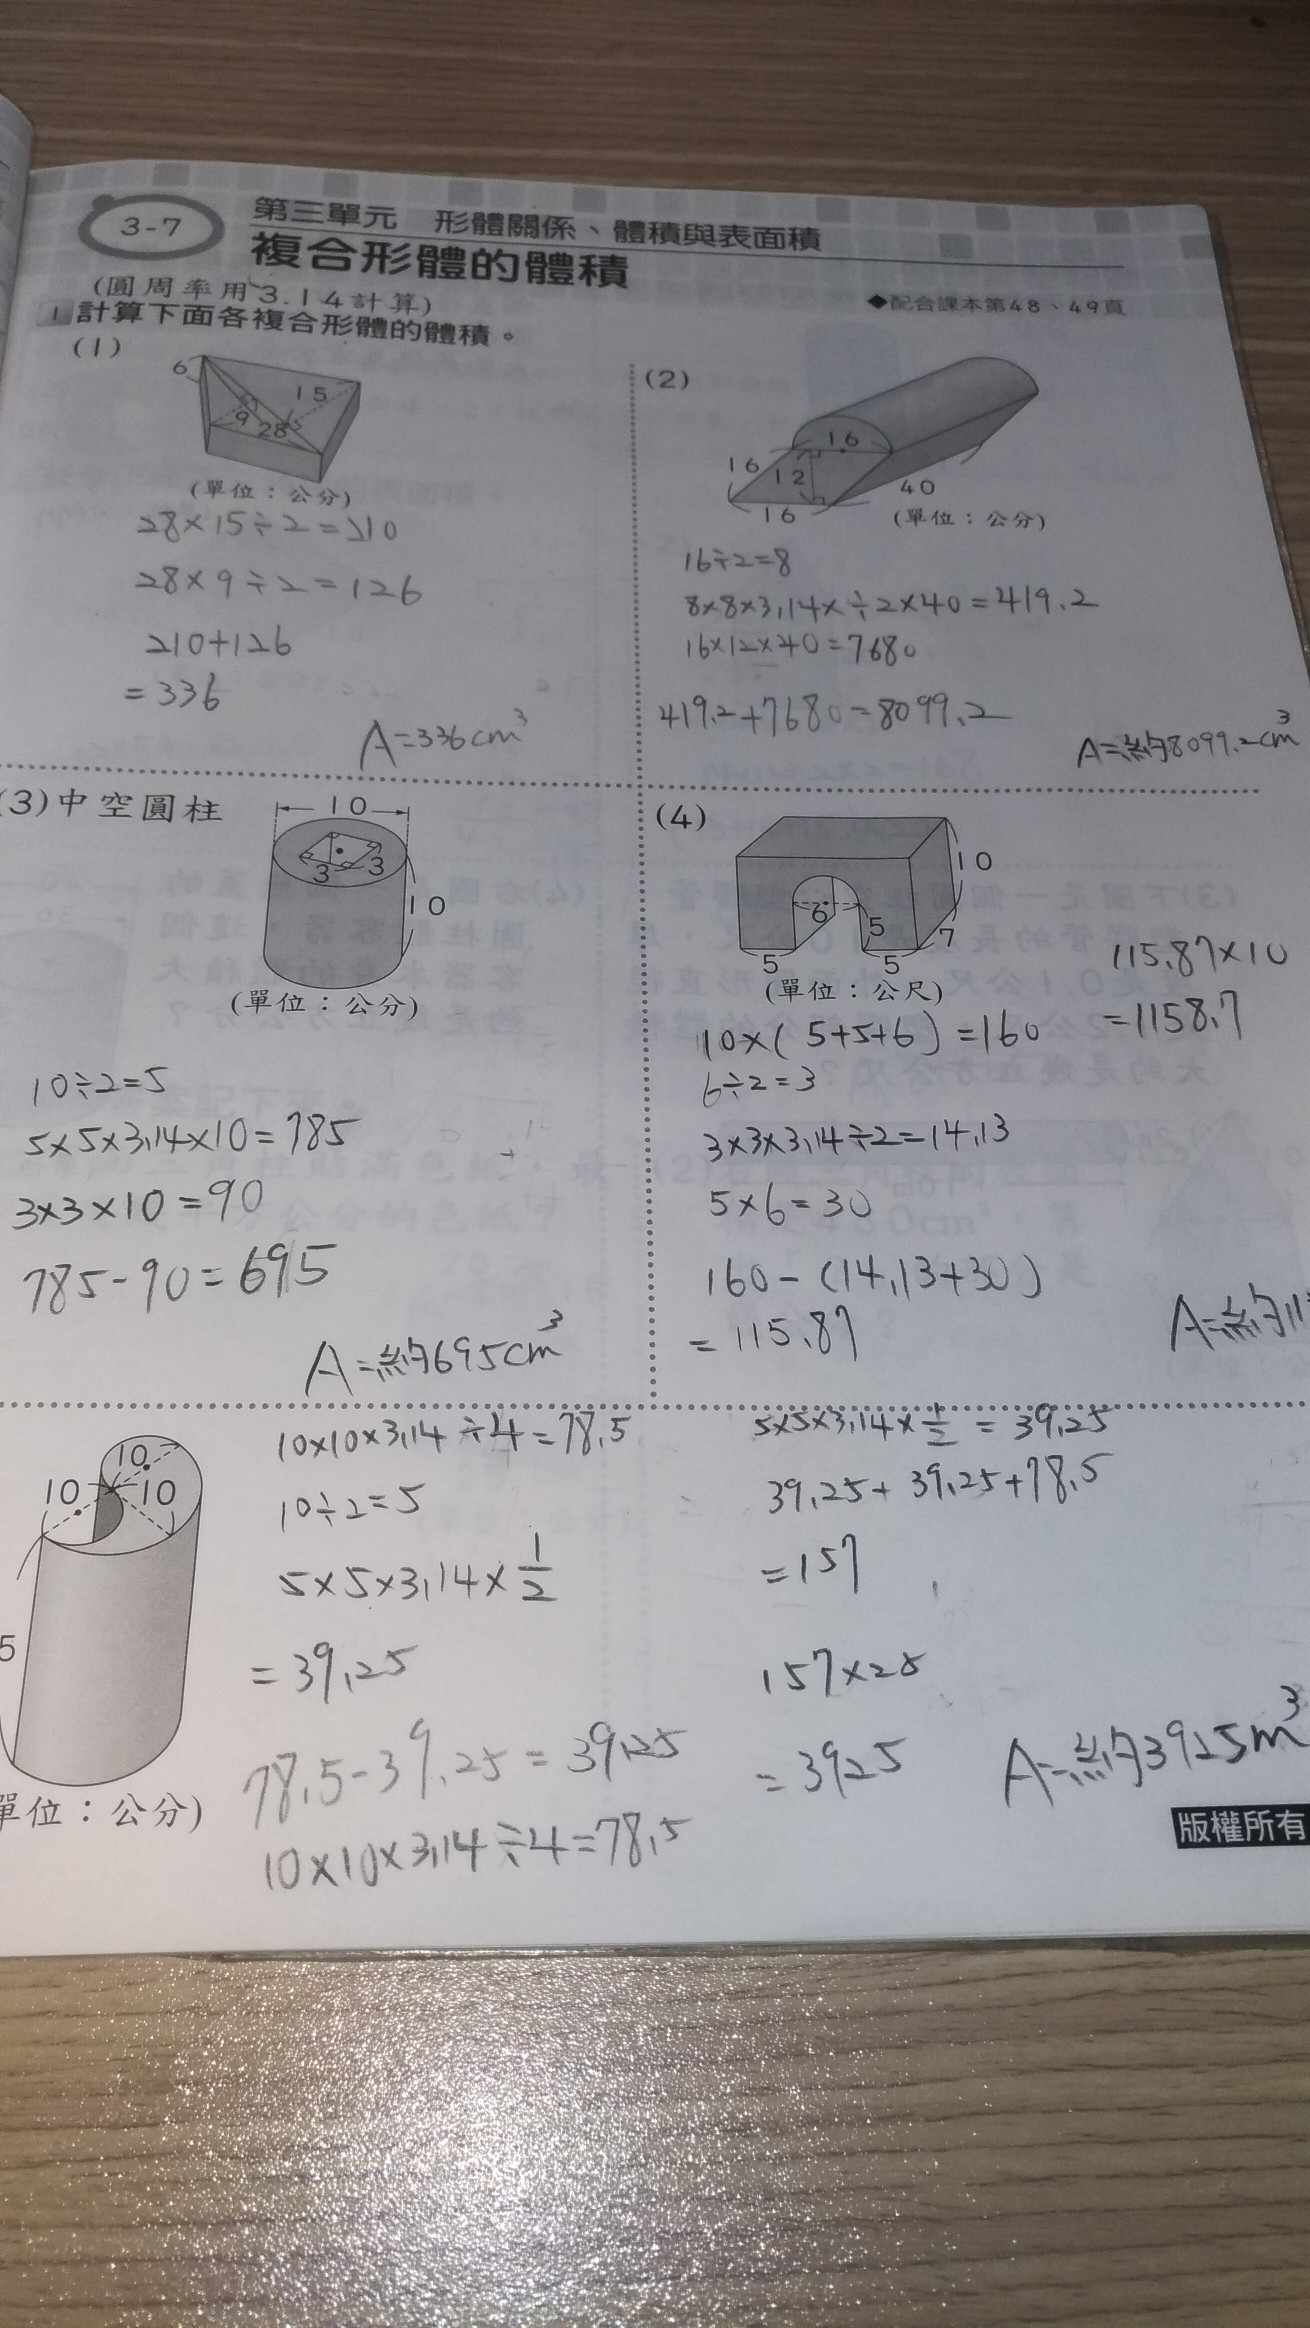 3-7
第三單元 形體關係、體積與表面積
複合形體的體積
(圓周率用3.14計算)
◆配合課本第48、49頁
1 計算下面各複合形體的體積。
(1)
6
15
9
28
(單位：公分)
28×15÷2=210
28×9÷2=126
210+126
=336
A=336cm³
(2)
16
16
12
16
40
(單位：公分)
16÷2=8
8×8×3.14×÷2×40=419.2
16×12×40=7680
419.2+7680=8099.2
A=約8099.2cm³
(3)中空圓柱
10
3
3
10
(單位：公分)
10÷2=5
5×5×3.14×10=785
3×3×10=90
785-90=695
A=約695cm³
(4)
10
6
5
7
5
5
(單位：公尺)
10×(5+5+6)=160
6÷2=3
3×3×3.14÷2=14.13
5×6=30
160-(14.13+30)
=115.87
115.87×10
=1158.7
A=約11
10
10
10
5
單位：公分)
10×10×3.14÷4=78.5
10÷2=5
5×5×3.14×1/2
=39.25
78.5-39.25=39.25
10×10×3.14÷4=78.5
5×5×3.14×1/2=39.25
39.25+39.25+78.5
=157
157×25
=3925
A=約3925m³
版權所有